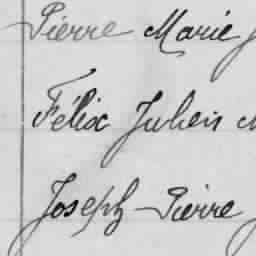 Pierre Marie J
Félix Julien M
Joseph Pierre